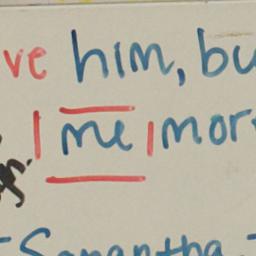 ve him, bu
me mor
Samantha